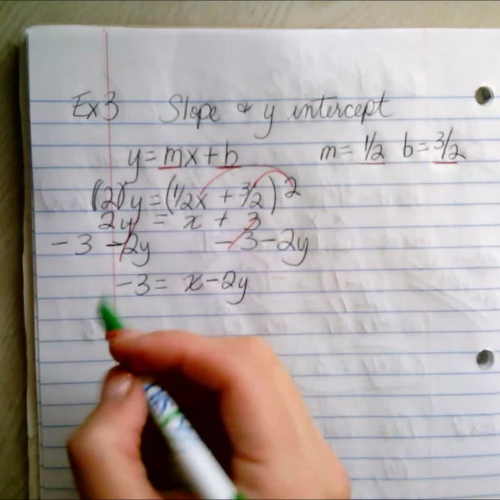 Ex3 Slope & y intercept
y = mx + b m = 1/2 b = 3/2
(2)y = (1/2x + 3/2)2
2y = x + 3
-3 -2y -3 -2y
-3 = x - 2y